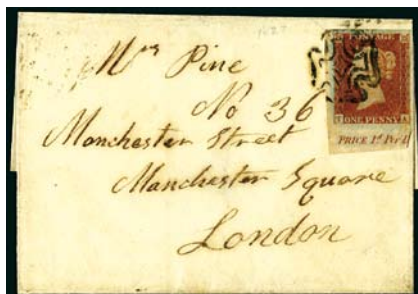 Mrs Pine
No 36
Manchester Street
Manchester Square
London
POSTAGE
ONE PENNY
PRICE 1d Per L